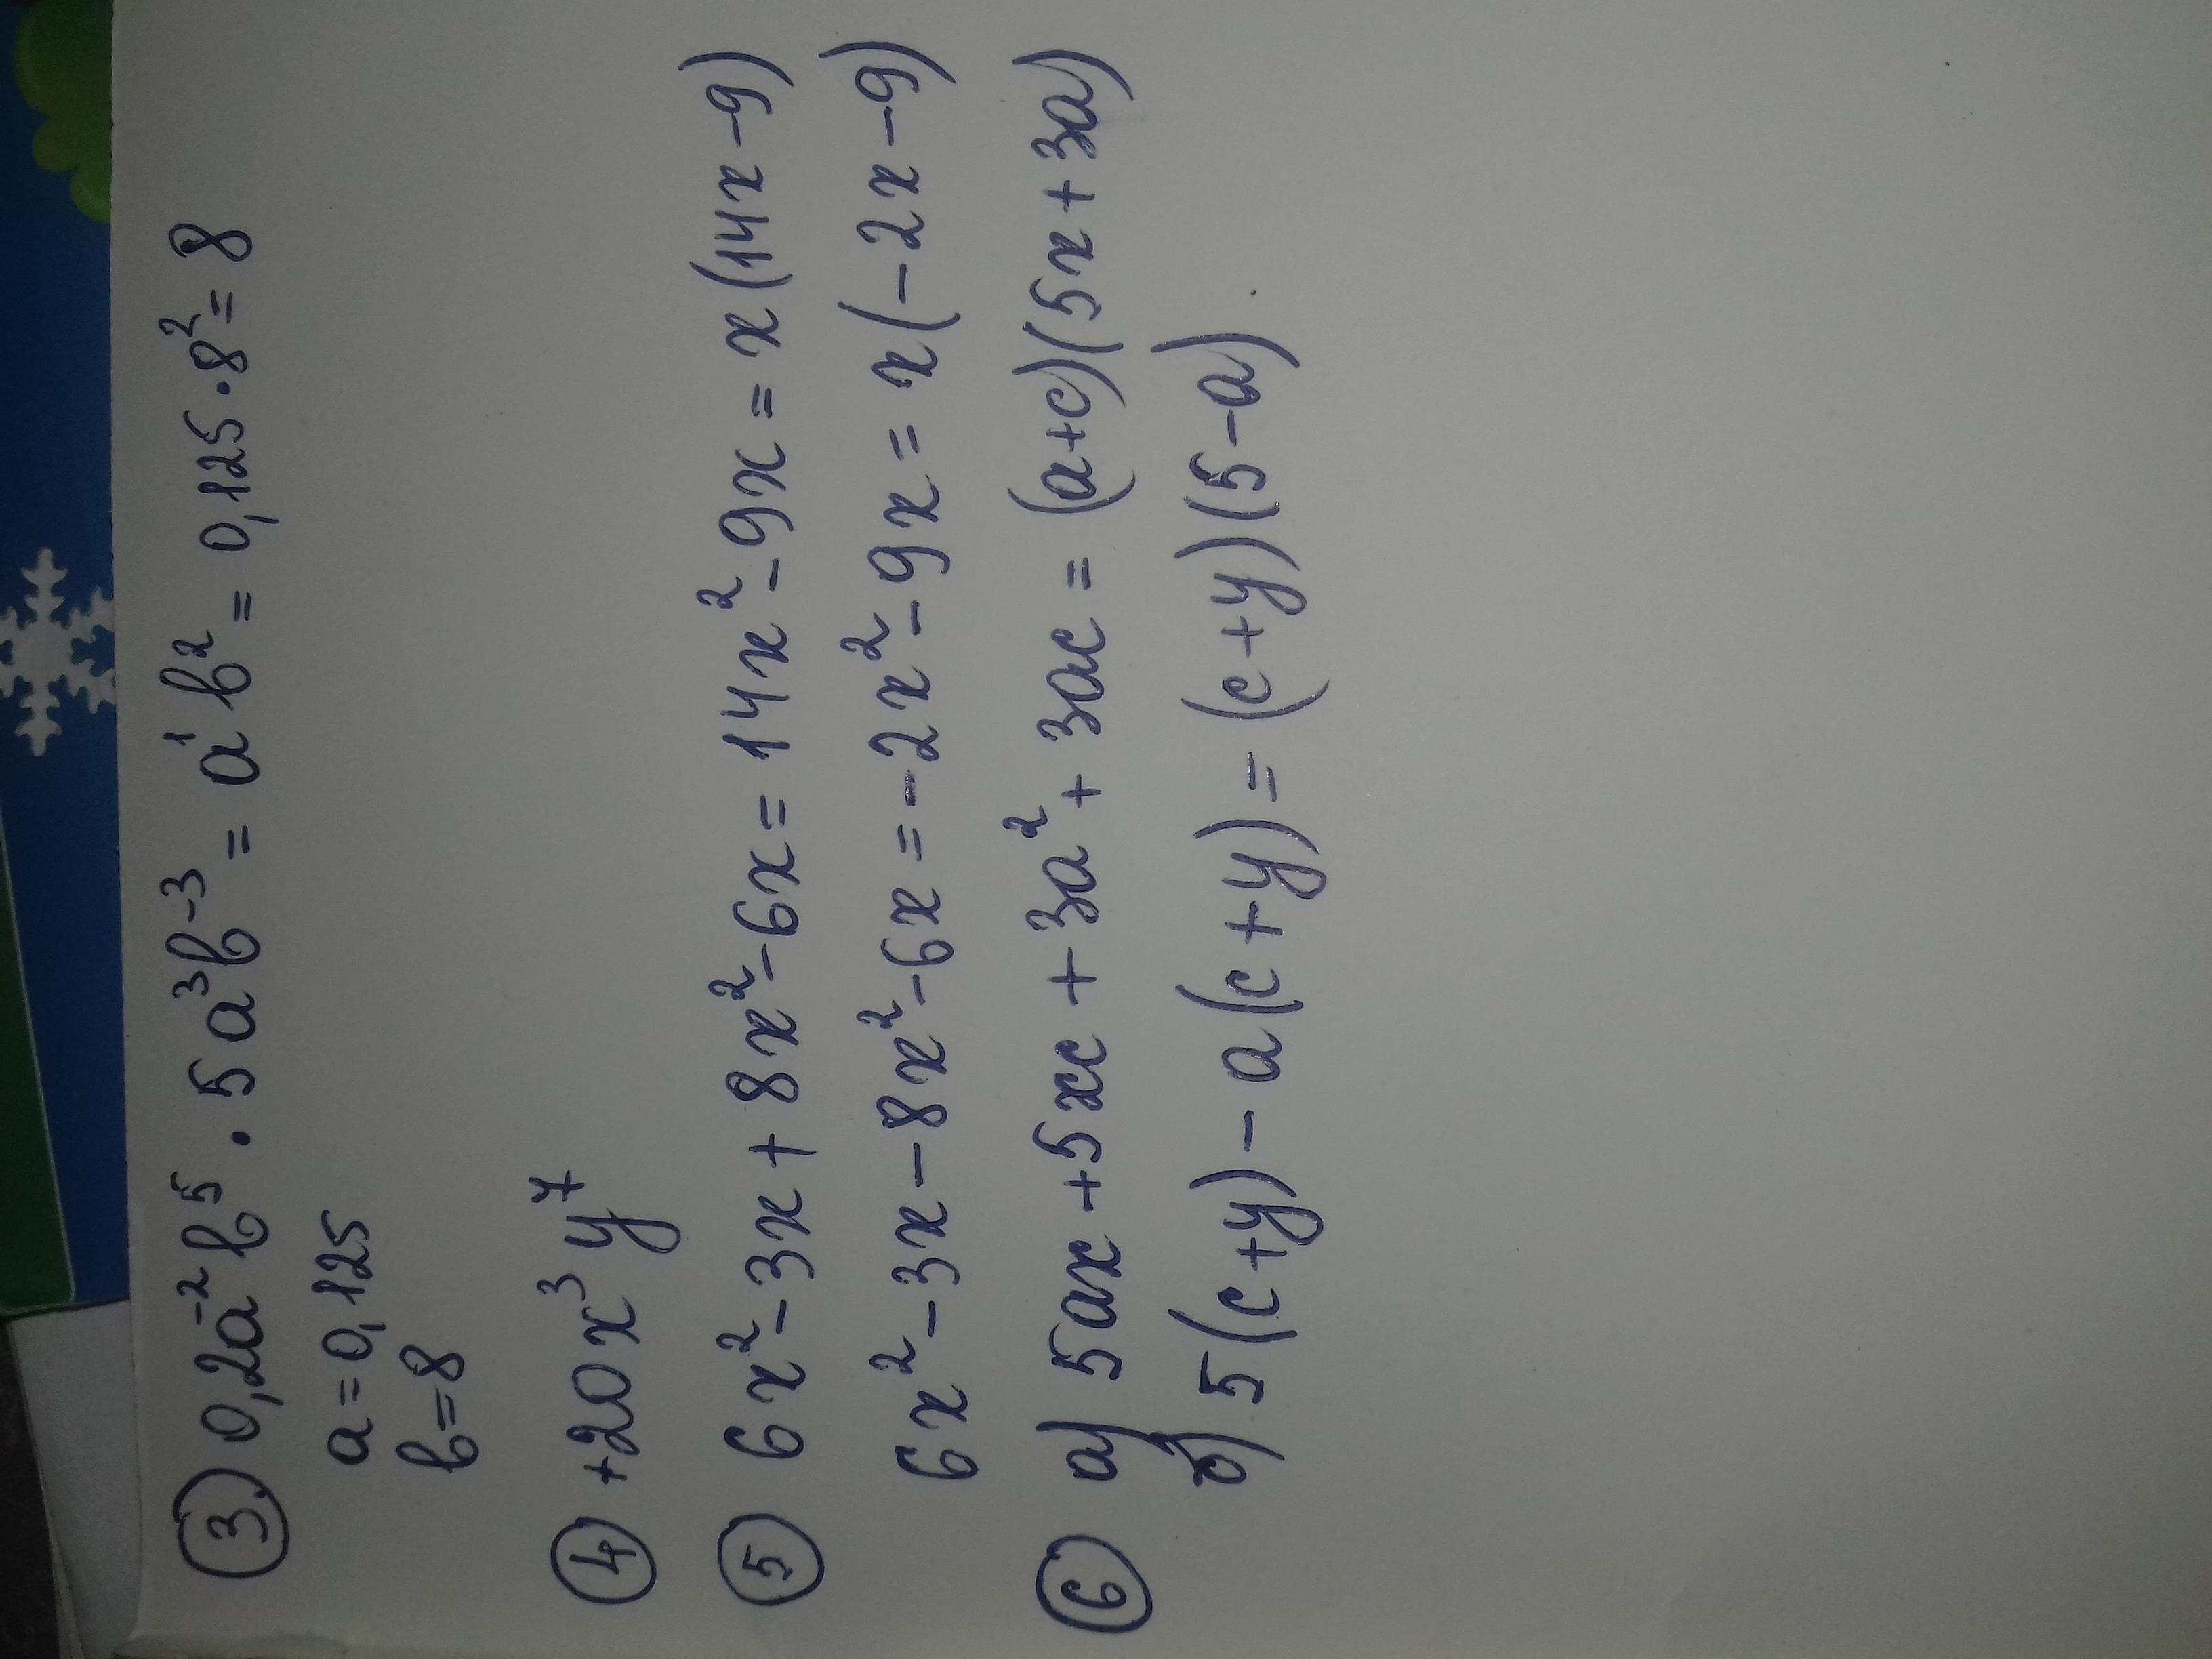 3) 0,2a⁻²b⁵ · 5a³b⁻³ = a¹b² = 0,125 · 8² = 8
a = 0,125
b = 8
4 +20x³y⁷
5 6x² - 3x + 8x² - 6x = 14x² - 9x = x(14x - 9)
6x² - 3x - 8x² - 6x = -2x² - 9x = x(-2x - 9)
6 а) 5ax + 5xc + 3a² + 3ac = (a+c)(5x + 3a)
б) 5(c+y) - a(c+y) = (c+y)(5-a)